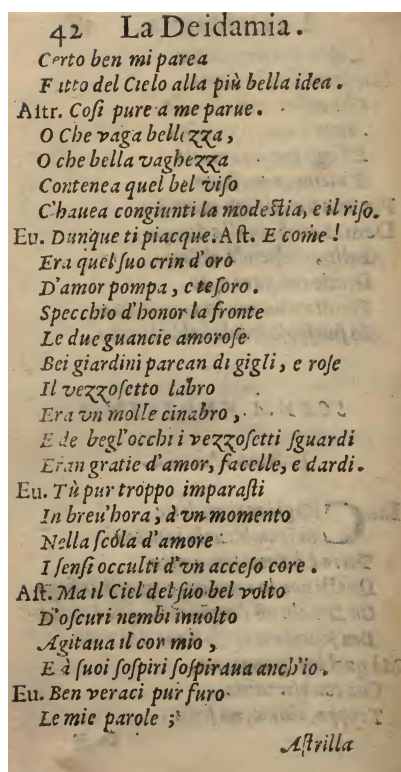 42 La Deidamia.
Certo ben mi parea
Fatto del Cielo alla più bella idea.
Astr. Coſi pure a me parue.
O Che vaga bellezza,
O che bella vaghezza
Contenea quel bel viſo
C'hauea congiunti la modeſtia, e il riſo.
Eu. Dunque ti piacque. Aſt. E come!
Era quel ſuo crin d'oro
D'amor pompa, e teſoro.
Specchio d'honor la fronte
Le due guancie amoroſe
Bei giardini parean di gigli, e roſe
Il vezzoſetto labro
Era vn molle cinabro,
E de begl'occhi i vezzoſetti ſguardi
Eran gratie d'amor, facelle, e dardi.
Eu. Tù pur troppo imparaſti
In breu'hora, à vn momento
Nella ſcola d'amore
I ſenſi occulti d'vn acceſo core.
Aſt. Ma il Ciel del ſuo bel volto
D'oſcuri nembi inuolto
Agitaua il cor mio,
E à ſuoi ſoſpiri ſoſpiraua anch'io.
Eu. Ben veraci pur furo
Le mie parole;
Aſtrilla